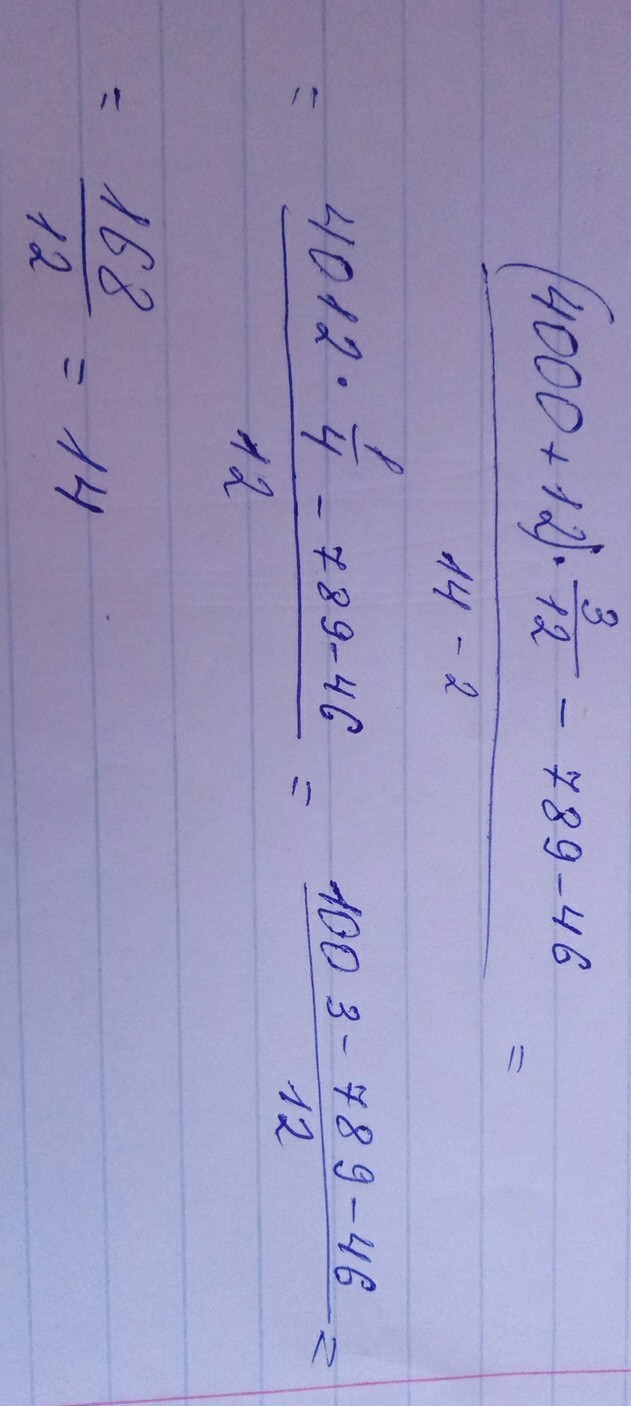 (4000 + 12) · 3/12 - 789 - 46
14 - 2
=
= 4012 · 1/4 - 789 - 46
12
= 1003 - 789 - 46
12
=
= 168/12 = 14